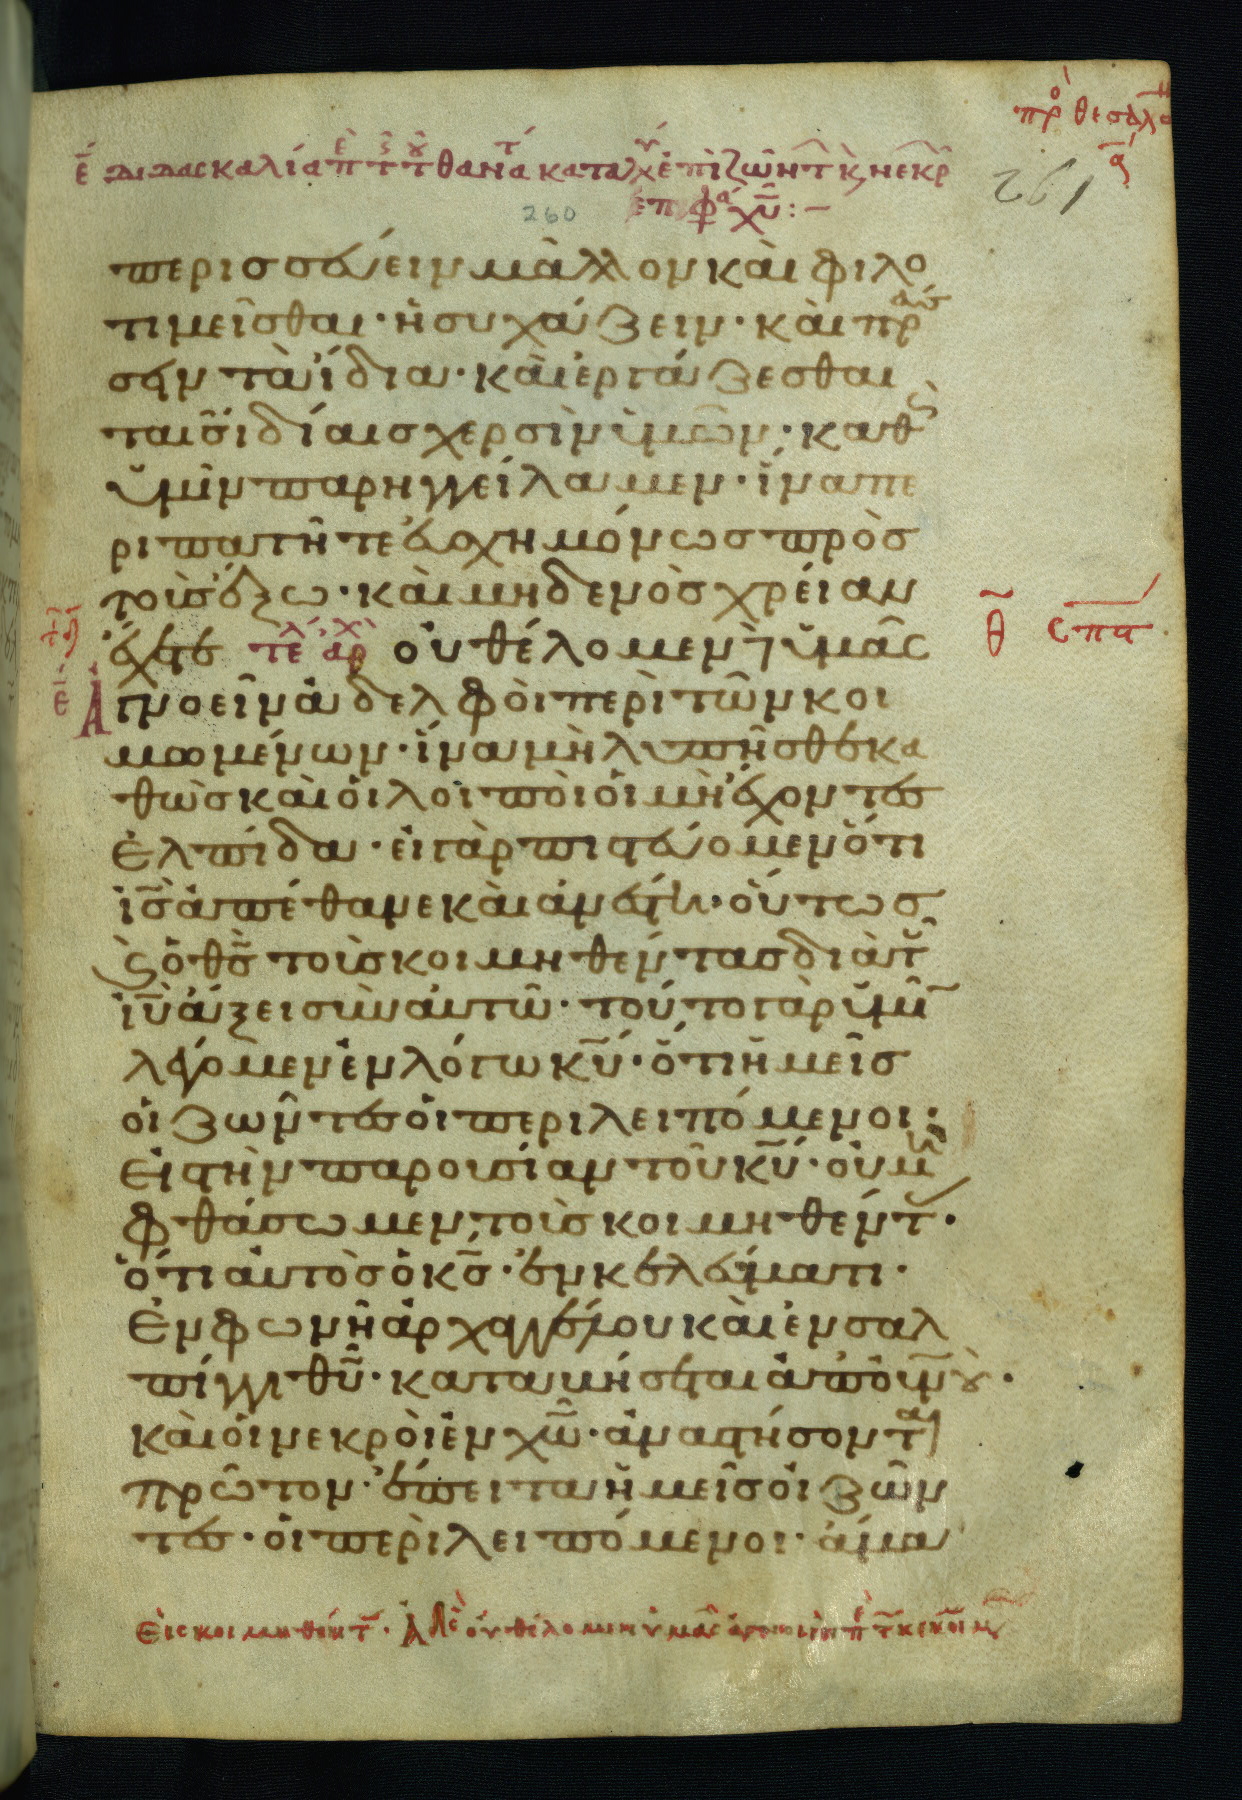 πρ θεσαλ
α
ε διδασκαλία π τ τ θανα κατα χε επι ζωη τ κ νεκρ
επιφα χυ : —
261
260
περισσεύειν μᾶλλον καὶ φιλο
τιμεῖσθαι · ἡσυχάζειν · καὶ πρασ
σειν τὰ ἴδια · καὶ ἐργάζεσθαι
ταῖς ἰδίαις χερσὶν ὑμῶν · καθς
ὑμῖν παρηγγείλαμεν · ἵνα πε
ριπατῆτε εὐσχημόνως πρὸς
τοὺς ἔξω · καὶ μηδενὸς χρείαν
ἔχητε τε αρχ οὐ θέλομεν ὑμᾶς
θ σπα
ε
Ἀγνοεῖν ἀδελφοὶ περὶ τῶν κοι
μωμένων · ἵνα μὴ λυπῆσθε κα
θὼς καὶ οἱ λοιποὶ οἱ μὴ ἔχοντες
ἐλπίδα · εἰ γὰρ πιστεύομεν ὅτι
ις ἀπέθανε καὶ ἀνέστη · οὕτως
ϗ ὁ θς τοὺς κοιμηθέντας διὰ τ
ιυ ἄξει σὺν αὐτῶ · τοῦτο γὰρ ὑμῖ
λέγομεν ἐν λόγω κυ · ὅτι ἡμεῖς
οἱ ζῶντες οἱ περιλειπόμενοι ·
εἰς τὴν παρουσίαν τοῦ κυ · οὐ μη
φθάσωμεν τοὺς κοιμηθέντ ·
ὅτι αὐτὸς ὁ κς · ἐν κελεύσματι ·
ἐν φωνῆ ἀρχαγγέλου καὶ ἐν σαλ
πίγγι θυ · καταβήσεται ἀπ οὐνου ·
καὶ οἱ νεκροὶ ἐν χω · ἀναστήσονται
πρῶτον · ἔπειτα ἡμεῖς οἱ ζῶν
τες · οἱ περιλειπόμενοι · ἅμα
Εἰς κοιμηθέντ · Ἀδε οὐ θέλομεν ὑμᾶς ἀγνοεῖν π τ κεκοιμ